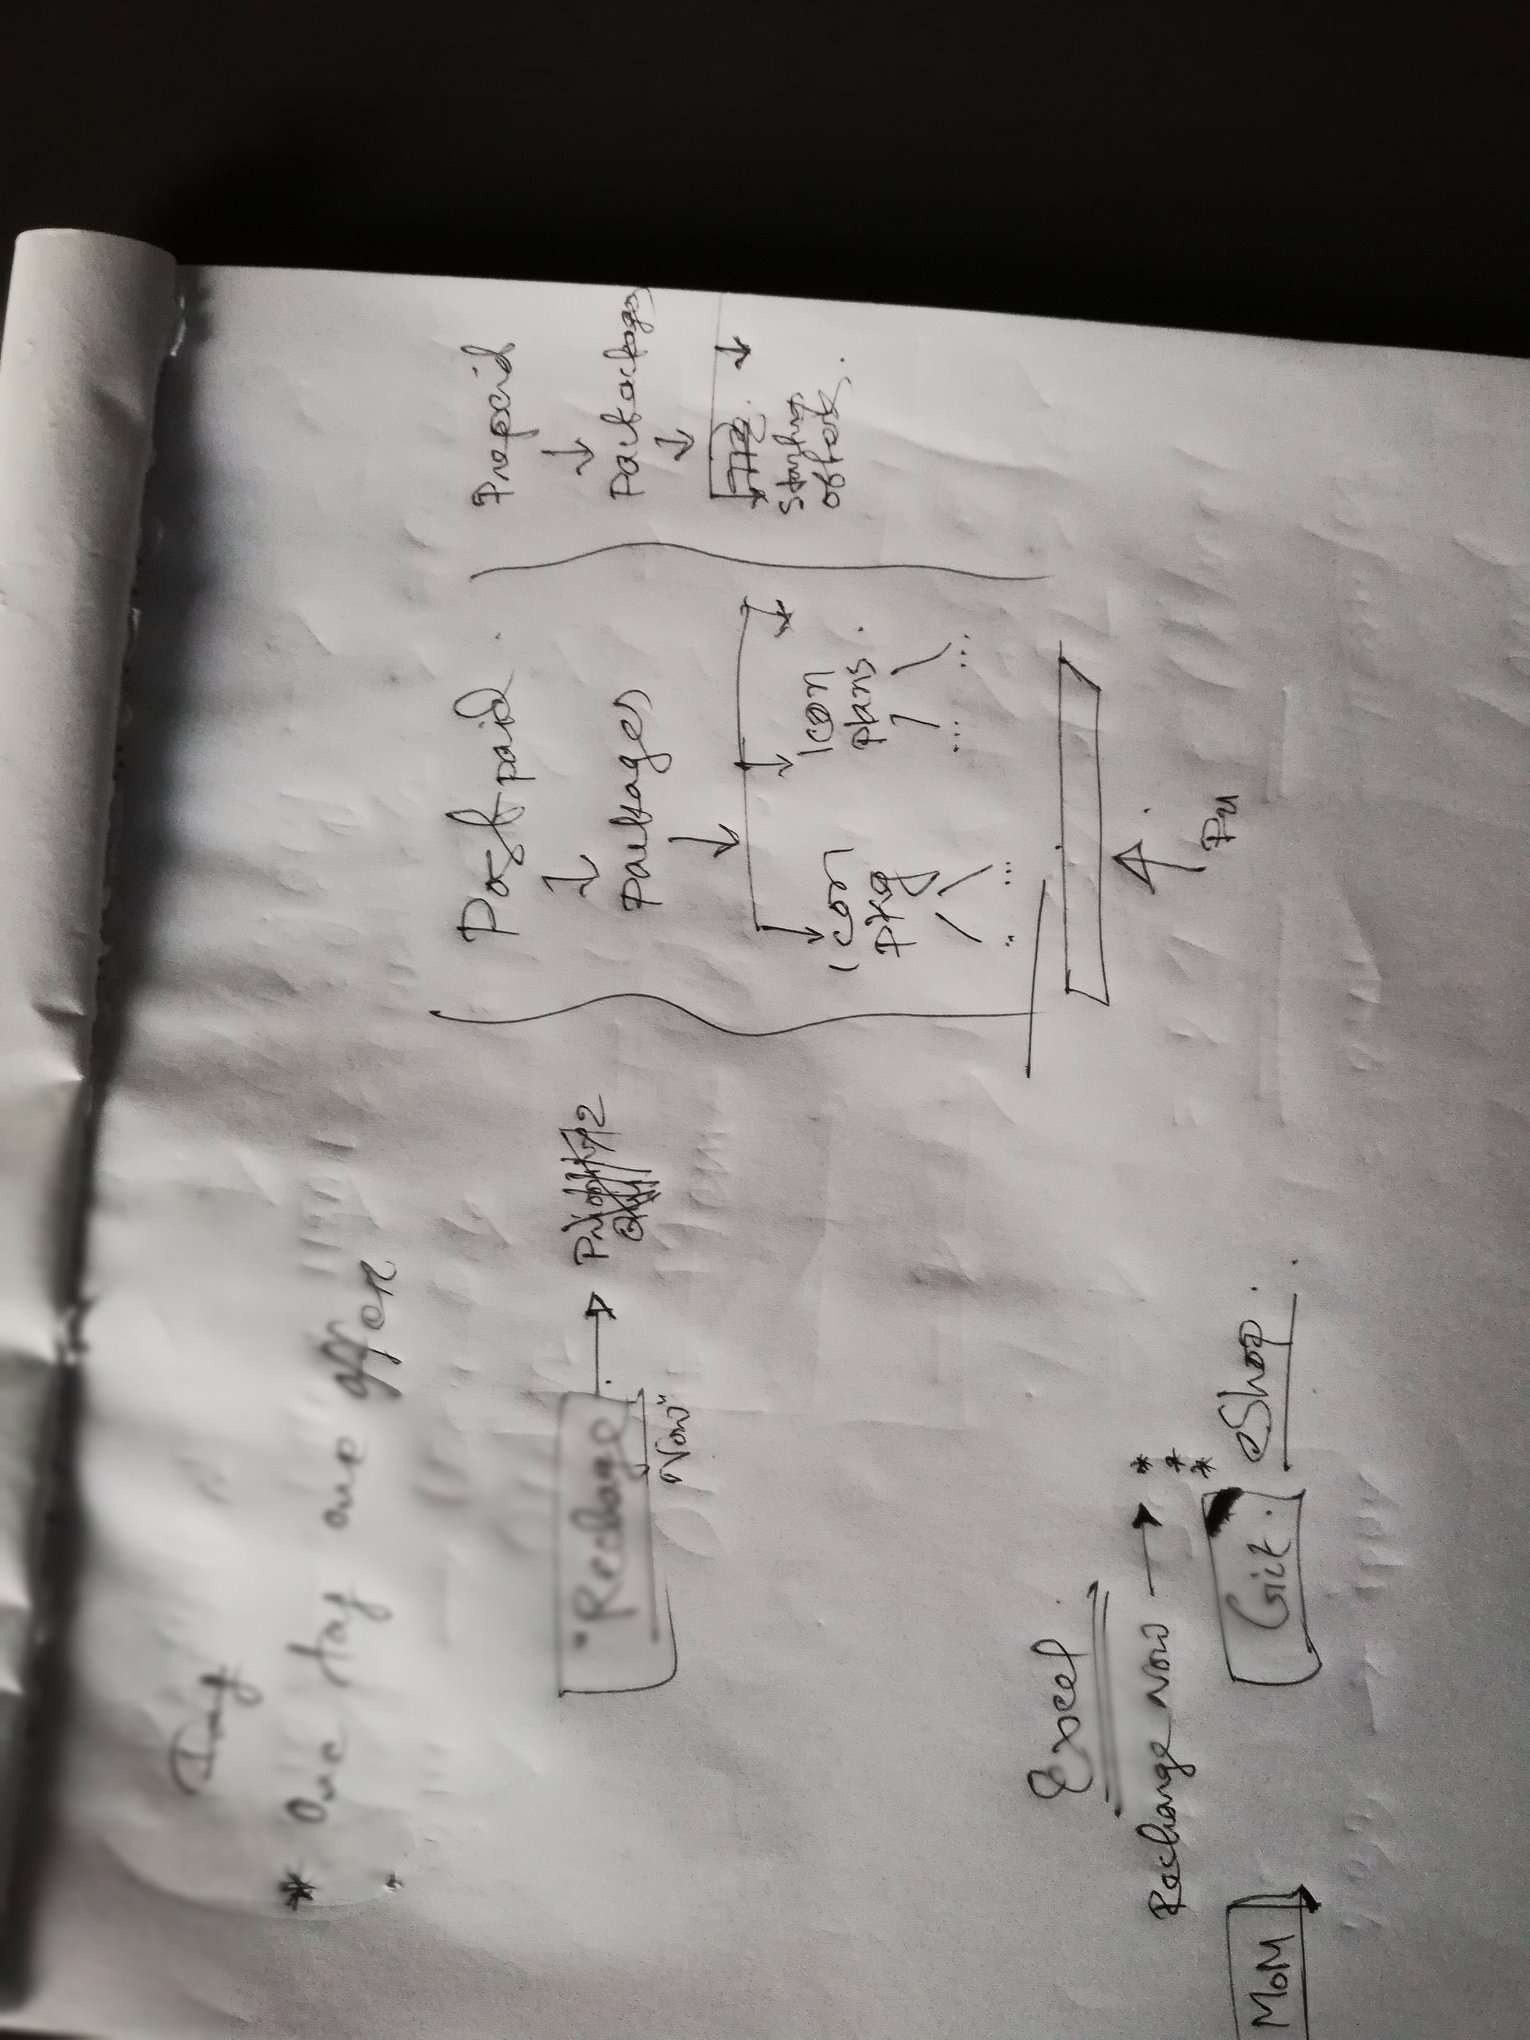 * One day one offer
"Rechage
Now"
Postpaid
Packages
Icon
pkg
...
...
Icon
plans.
...
...
Prepaid
Packackages
Startup
offers.
Excel
Rechange Now
*
*
*
MoM
eShop.